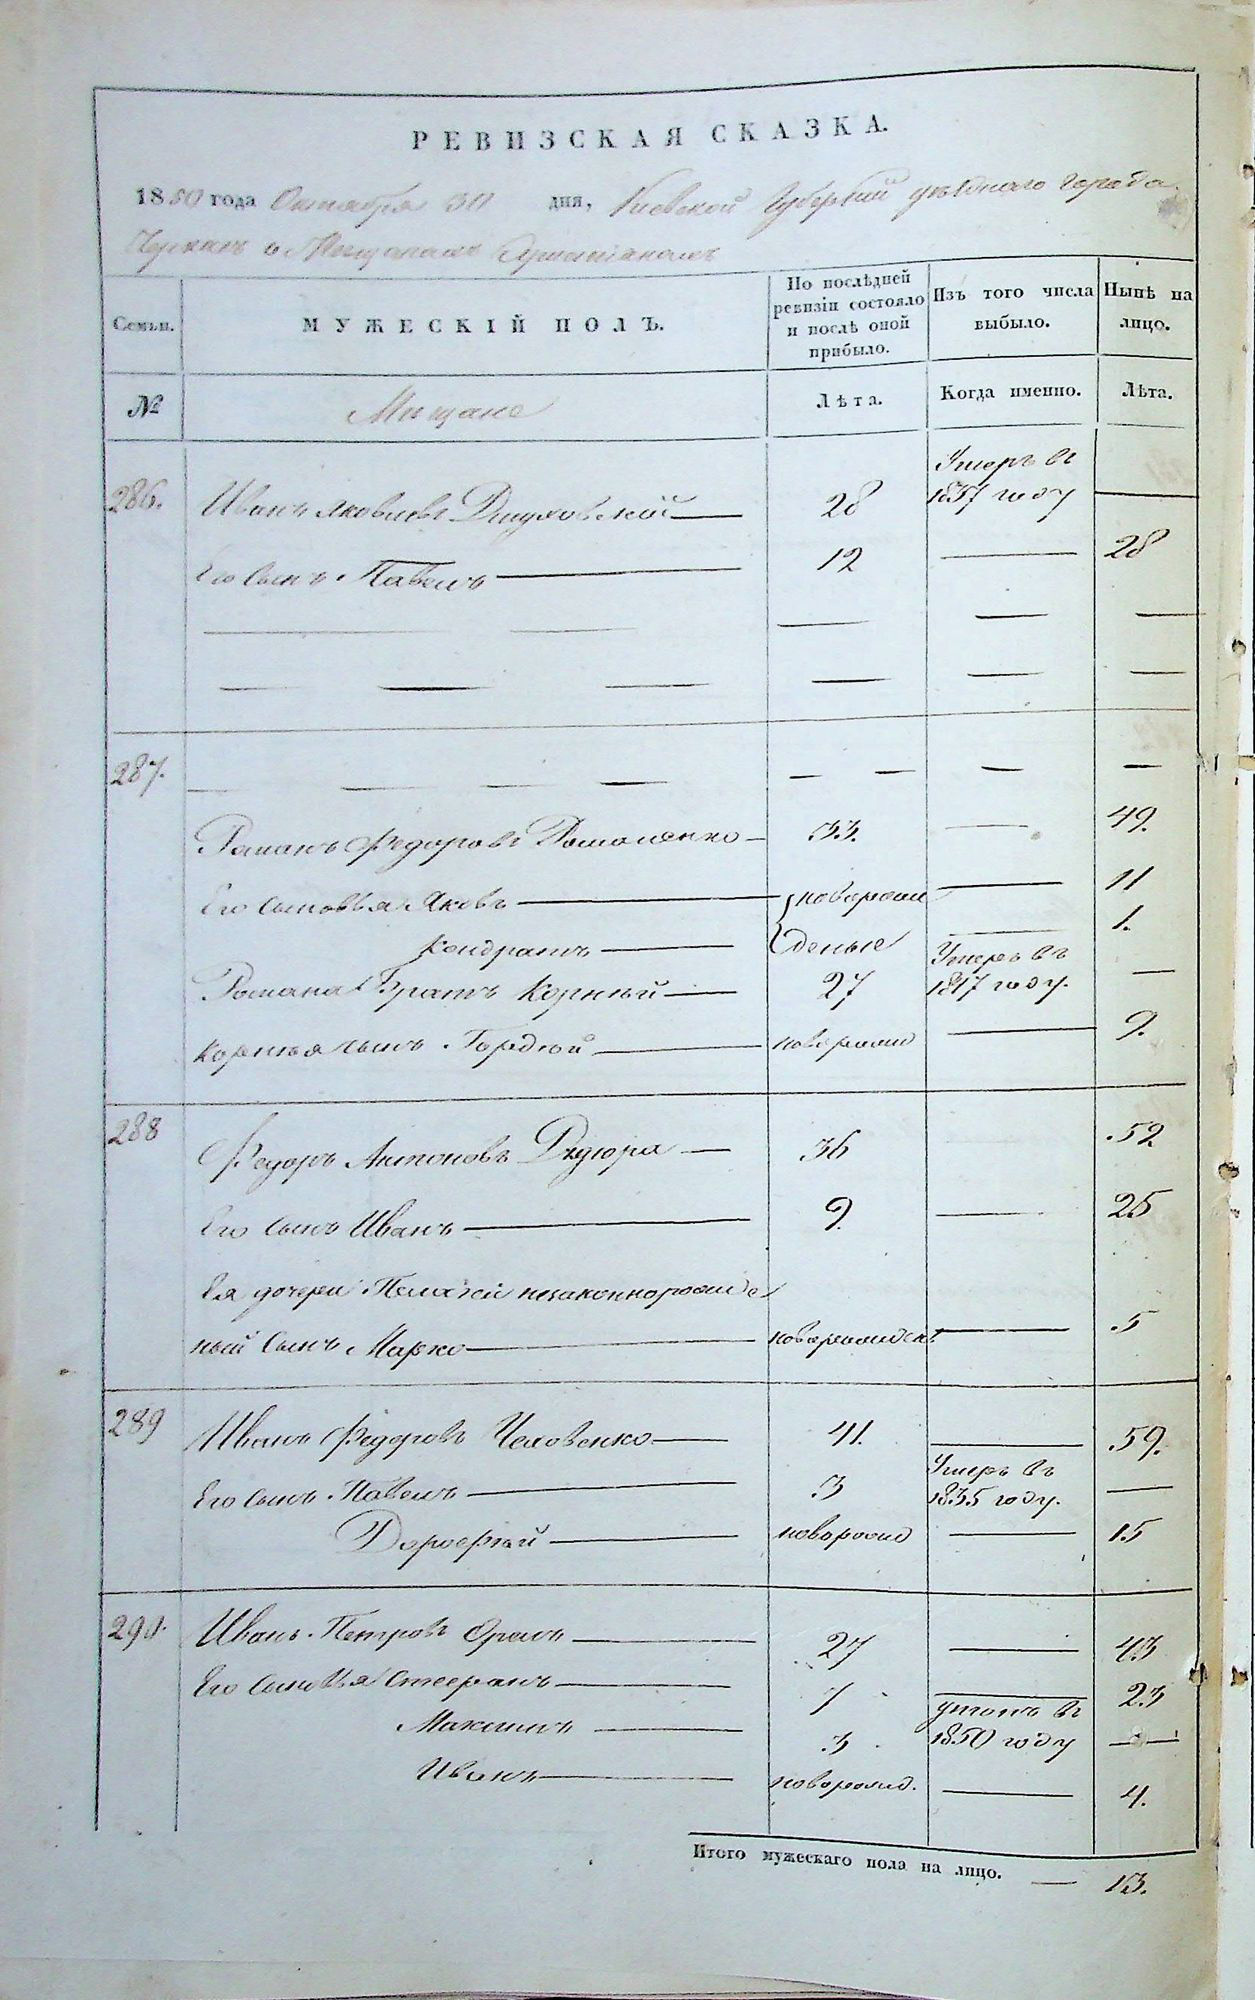 РЕВИЗСКАЯ СКАЗКА.
1850 года Октября 30 дня, Киевской Губерніи уѣзднаго города
Черкасъ о Мѣщанахъ Христіанахъ
Семьи.
МУЖЕСКІЙ ПОЛЪ.
По послѣдней ревизіи состояло и послѣ оной прибыло.
Изъ того числа выбыло.
Нынѣ на лицо.
№
Мищане
Лѣта.
Когда именно.
Лѣта.
286. Иванъ Яковлевъ 28 Умеръ въ 1837 году —
Его сынъ Павелъ — 12 — 28
— — — — —
— — — — — —
287. — — — — — — — —
Романъ Федоровъ Романенко — 33. — 49.
Его сыновья Яковъ — новорож — 11
Кондратъ — деные — 1.
Романа Братъ Корнѣй — 27 Умеръ въ 1847 году. —
Корнѣя сынъ Гордѣй — новорожд — 9.
288 Федоръ Антоновъ Дидюра — 36 52.
Его сынъ Иванъ — 9. — 25
Ея дочери Пелагеи незаконнорожде
ный сынъ Марко — новорожденъ — 5
289 Иванъ Федоровъ Чеховенко — 41. — 59.
Его сынъ Павелъ — 3 Умеръ въ 1835 году. —
Дорофѣй — новорожд — 15
290. Иванъ Петровъ Орелъ — 27 — 43
Его сыновья Стефанъ — 7 — 23
Максимъ — 3 утопъ въ 1850 году —
Иванъ — новорожд. — 4.
Итого мужескаго пола на лицо. — 13.